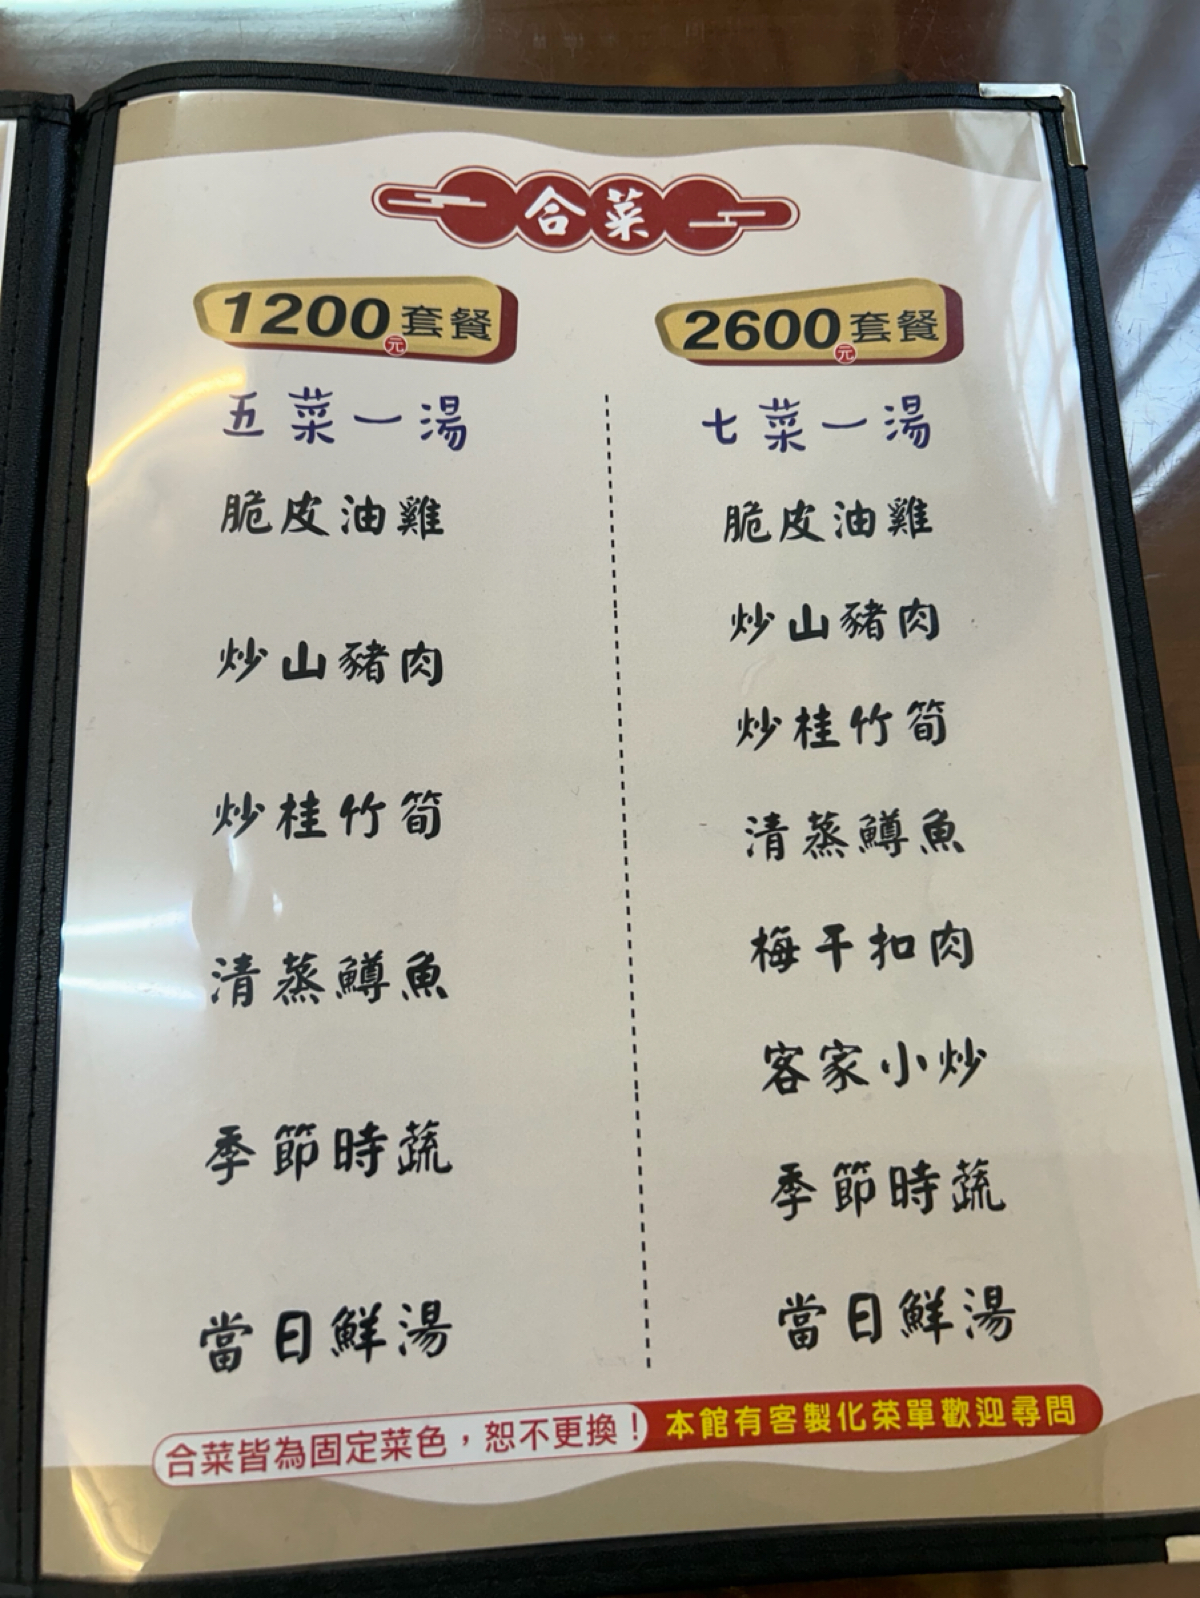 合菜
1200元套餐
五菜一湯
脆皮油雞
炒山豬肉
炒桂竹筍
清蒸鱒魚
季節時蔬
當日鮮湯
2600元套餐
七菜一湯
脆皮油雞
炒山豬肉
炒桂竹筍
清蒸鱒魚
梅干扣肉
客家小炒
季節時蔬
當日鮮湯
合菜皆為固定菜色，恕不更換！
本館有客製化菜單歡迎尋問